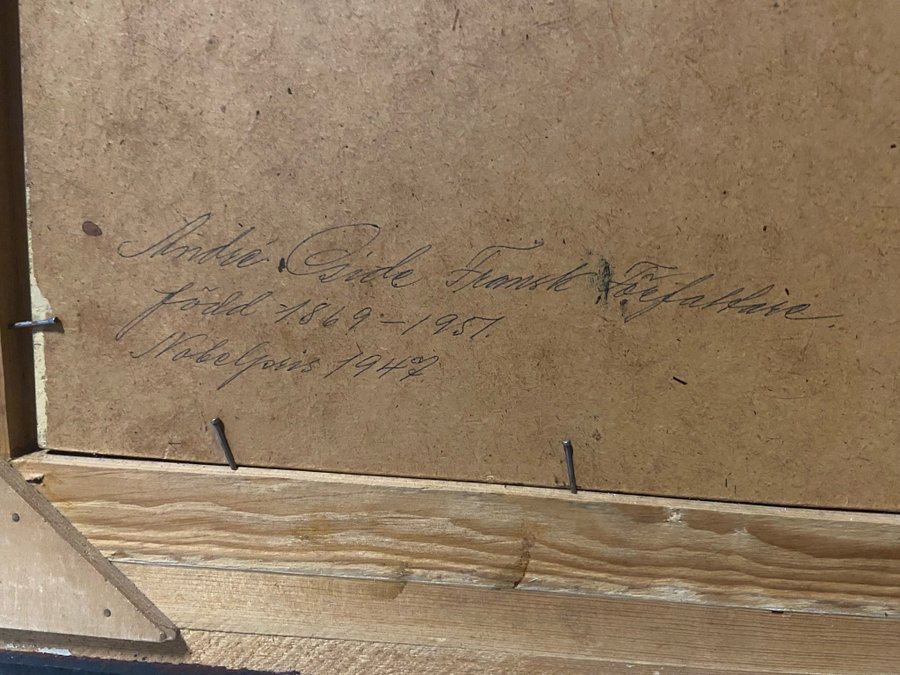 André Gide Fransk Författare.
född 1869-1951.
Nobelpris 1947